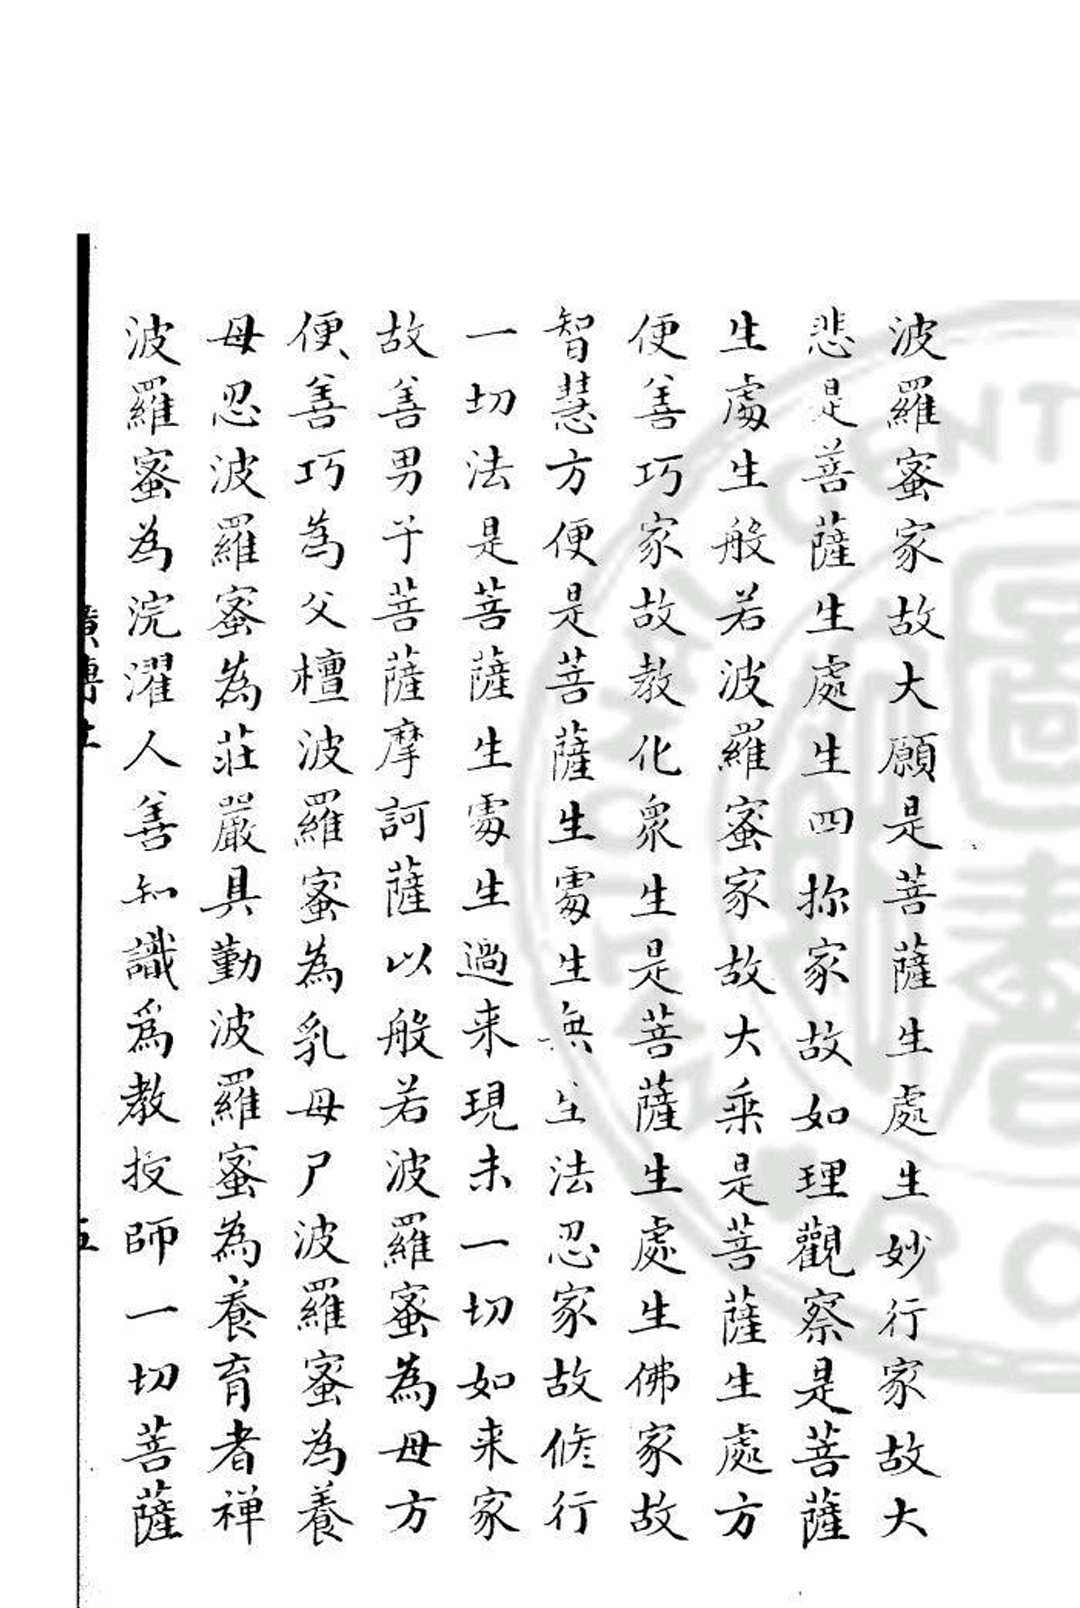 波羅蜜家故大願是菩薩生處生妙行家故大
悲是菩薩生處生四攝家故如理觀察是菩薩
生處生般若波羅蜜家故大乘是菩薩生處方
便善巧家故教化衆生是菩薩生處生佛家故
智慧方便是菩薩生處生無生法忍家故修行
一切法是菩薩生處生過来現未一切如来家
故善男子菩薩摩訶薩以般若波羅蜜為母方
便善巧為父檀波羅蜜為乳母尸波羅蜜為養
母忍波羅蜜為莊嚴具勤波羅蜜為養育者禅
波羅蜜為浣濯人善知識爲教授師一切菩薩
五